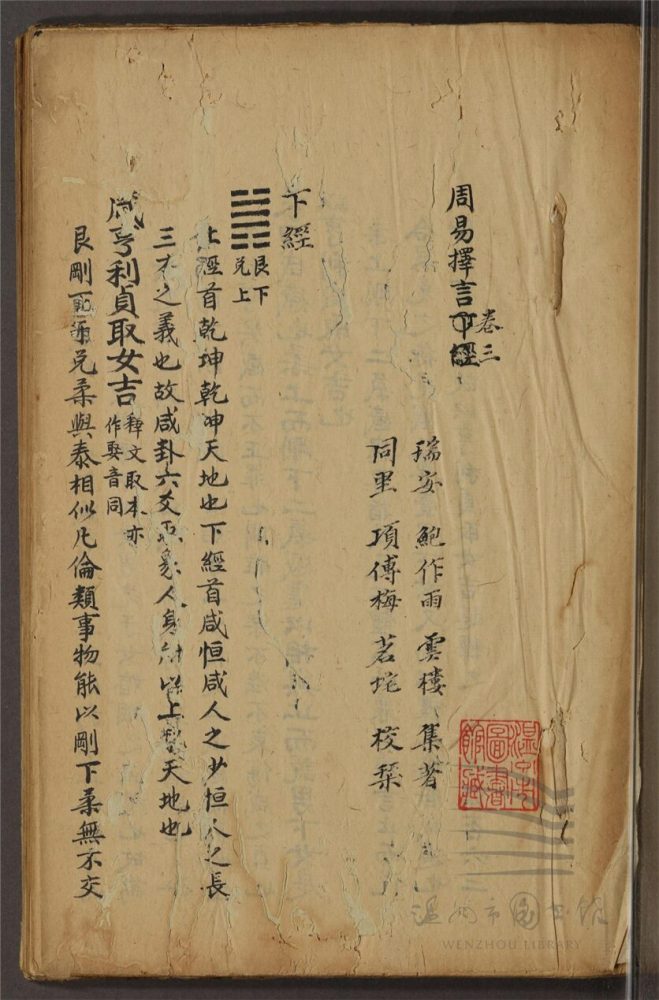 周易擇言下經 卷三
瑞安 鮑作雨 雲樓 集著
同里 項傅梅 茗垞 校栞
下經
艮下
兌上
上經首乾坤乾坤天地也下經首咸恒咸人之少恒人之長
三才之義也故咸卦六爻取象人身 以上 天地也
咸亨利貞取女吉 釋文取本亦
作娶音同
艮剛 兌柔與泰相似凡倫類事物能以剛下柔無不交
溫州市圖書館藏
溫州市圖書館
WENZHOU LIBRARY